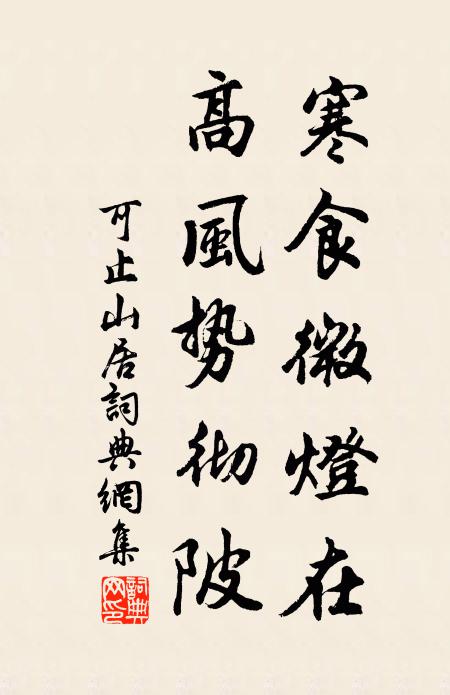 寒食微燈在
高風勢彻陂
可止山居詞典網集
詞典
网印